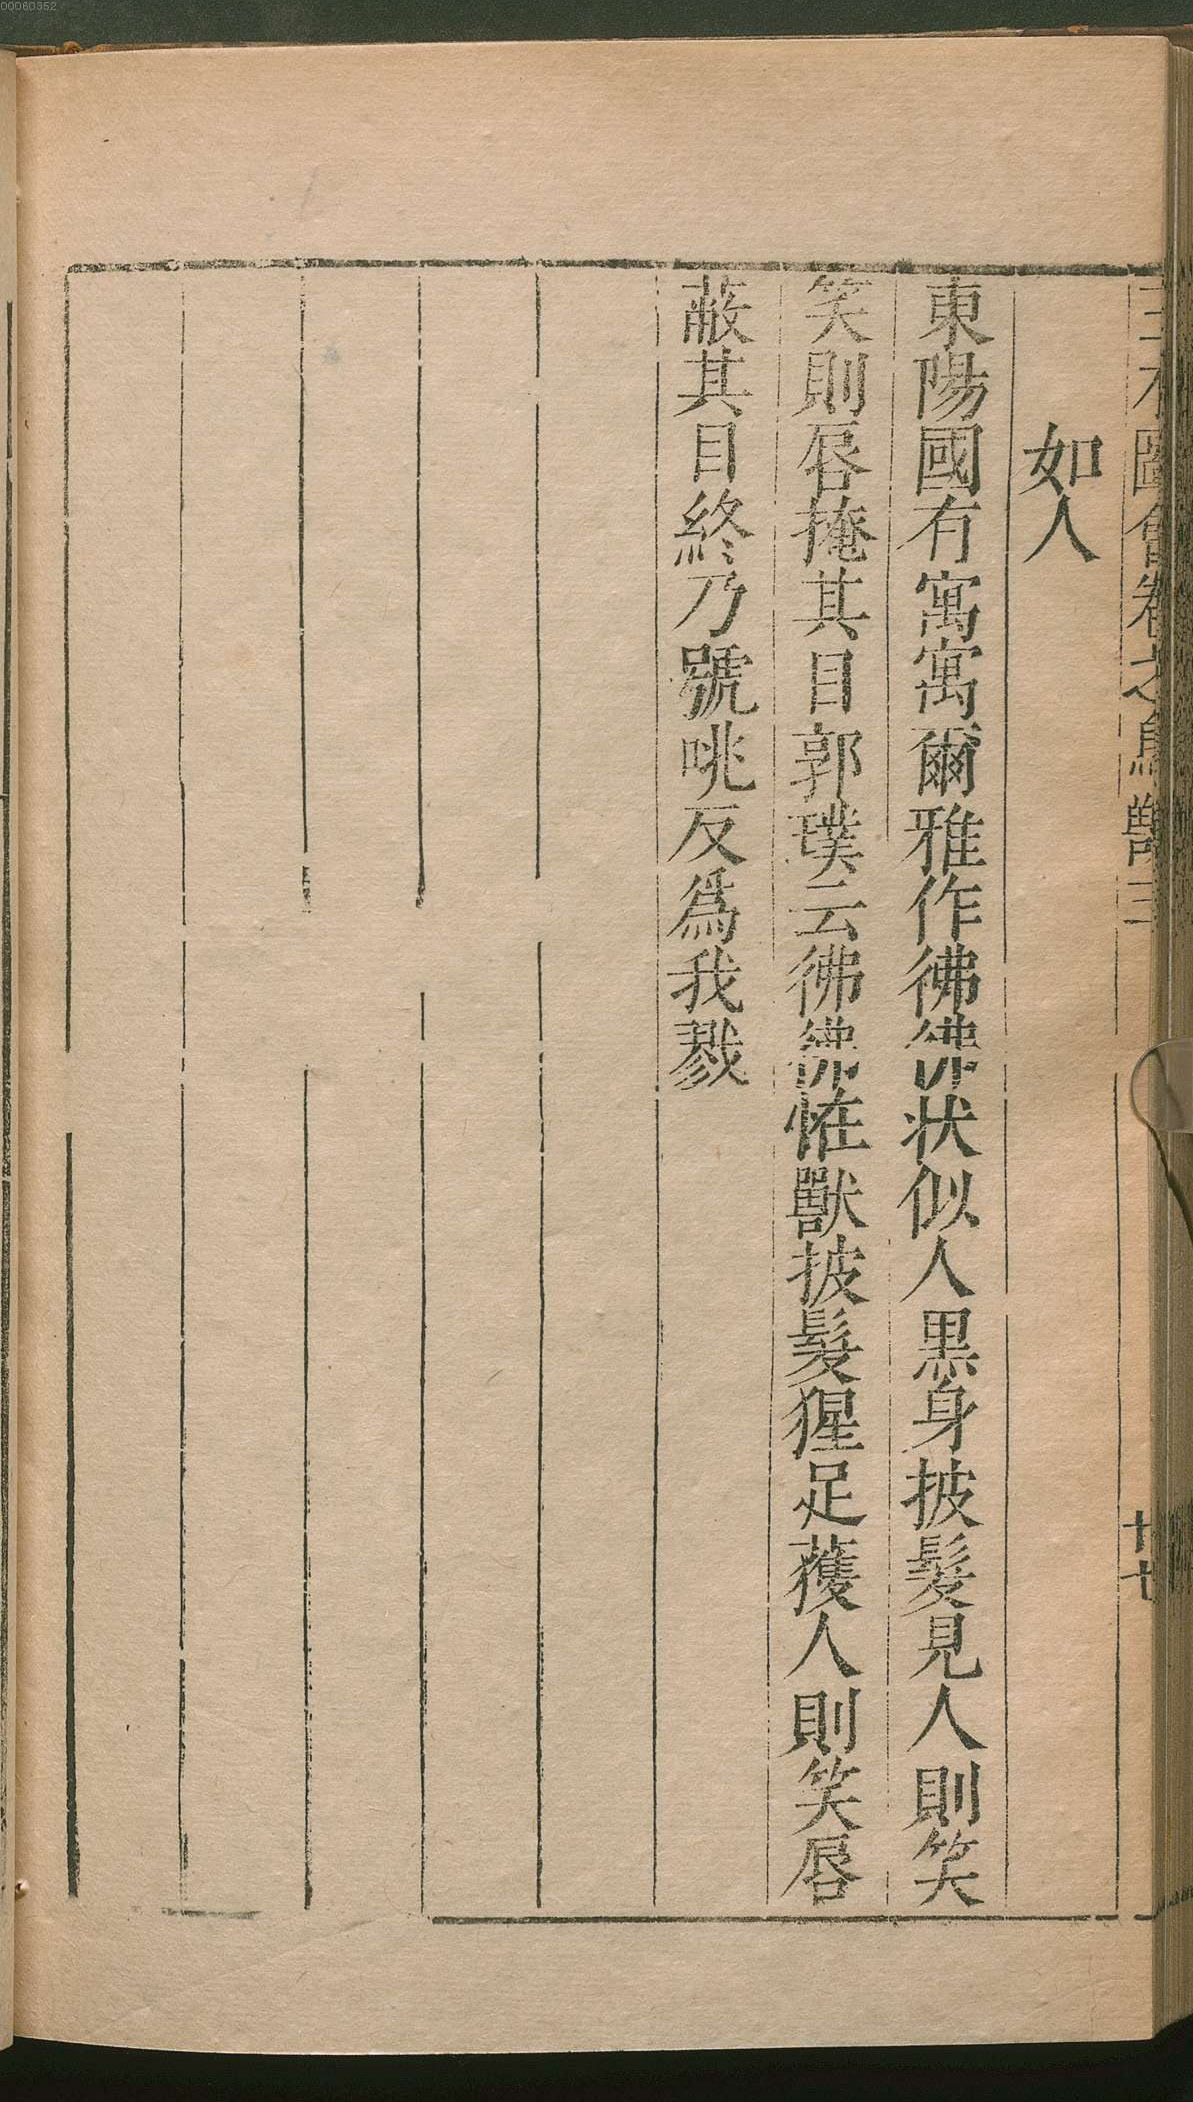 00060352
圖會卷之鳥獸三
廿七
如人
東陽國有寓寓爾雅作彿彿状似人黒身披髮見人則笑
笑則唇掩其目郭璞云彿彿恠獸披髮猩足獲人則笑唇
蔽其目終乃號咷反爲我戮